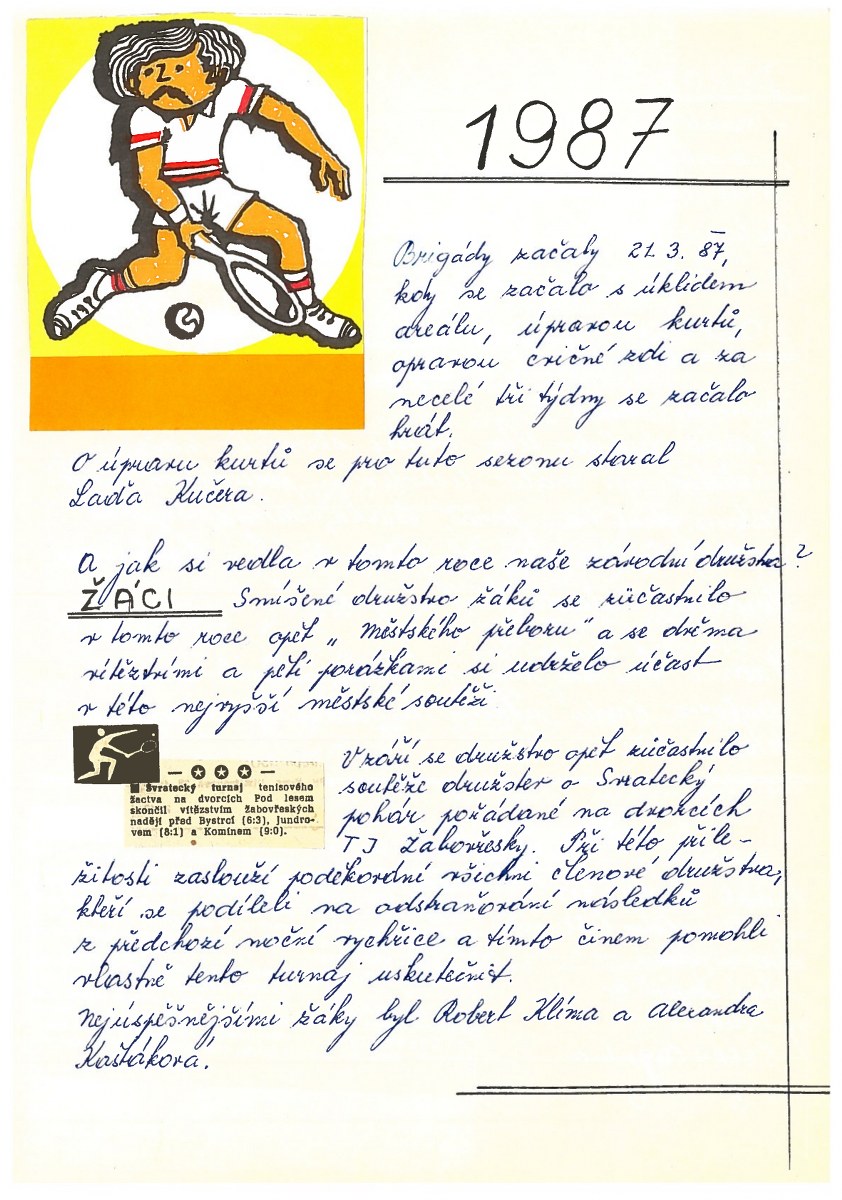 1987
Brigády začaly 21. 3. 87,
kdy se začalo s úklidem
areálu, úpravou kurtů,
opravou cvičné zdi a za
necelé tři týdny se začalo
hrát.
O úpravu kurtů se pro tuto sezonu staral
Laďa Kučera.
A jak si vedla v tomto roce naše závodní družstva?
ŽÁCI Smíšené družstvo žáků se zúčastnilo
v tomto roce opět „Městského přeboru" a se dvěma
vítězstvími a pěti porážkami si udrželo účast
v této nejvyšší městské soutěži.
V září se družstvo opět zúčastnilo
soutěže družstev o Svratecký
pohár pořádané na dvorcích
TJ Žabovřesky. Při této příle-
žitosti zaslouží poděkování všichni členové družstva,
kteří se podíleli na odstraňování následků
z předchozí noční vychřice a tímto činem pomohli
vlastně tento turnaj uskutečnit.
Nejúspěšnějšími žáky byl Robert Klíma a Alexandra
Kaštákova.
Svratecký turnaj tenisového
žactva na dvorcích Pod lesem
skončil vítězstvím žabovřeských
nadějí před Bystrcí (6:3), Jundro-
vem (8:1) a Komínem (9:0).